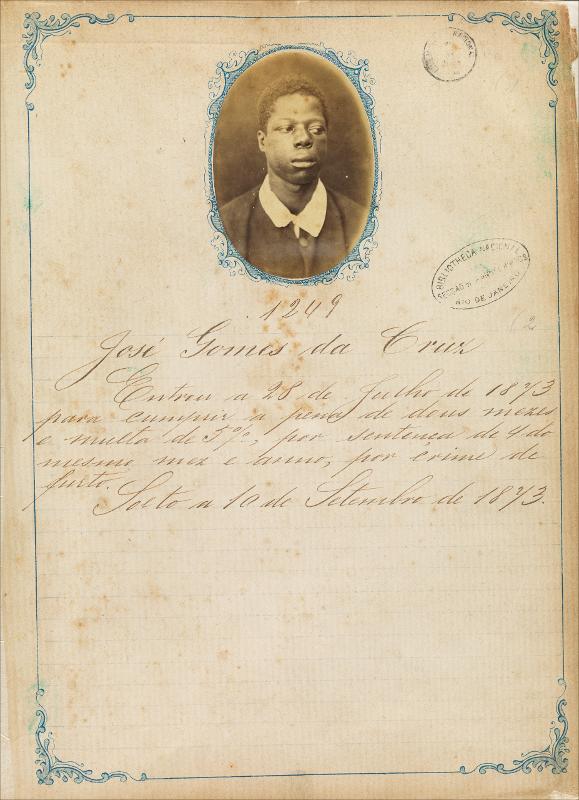 BIBLIOTHECA NACIONAL
RIO DE JANEIRO
1249
José Gomes da Cruz
Entrou a 28 de Julho de 1873
para cumprir a pena de dous mezes
e multa de 5%, por sentença de 4 do
mesmo mez e anno, por crime de
furto.
Solto a 1º de Setembro de 1873.